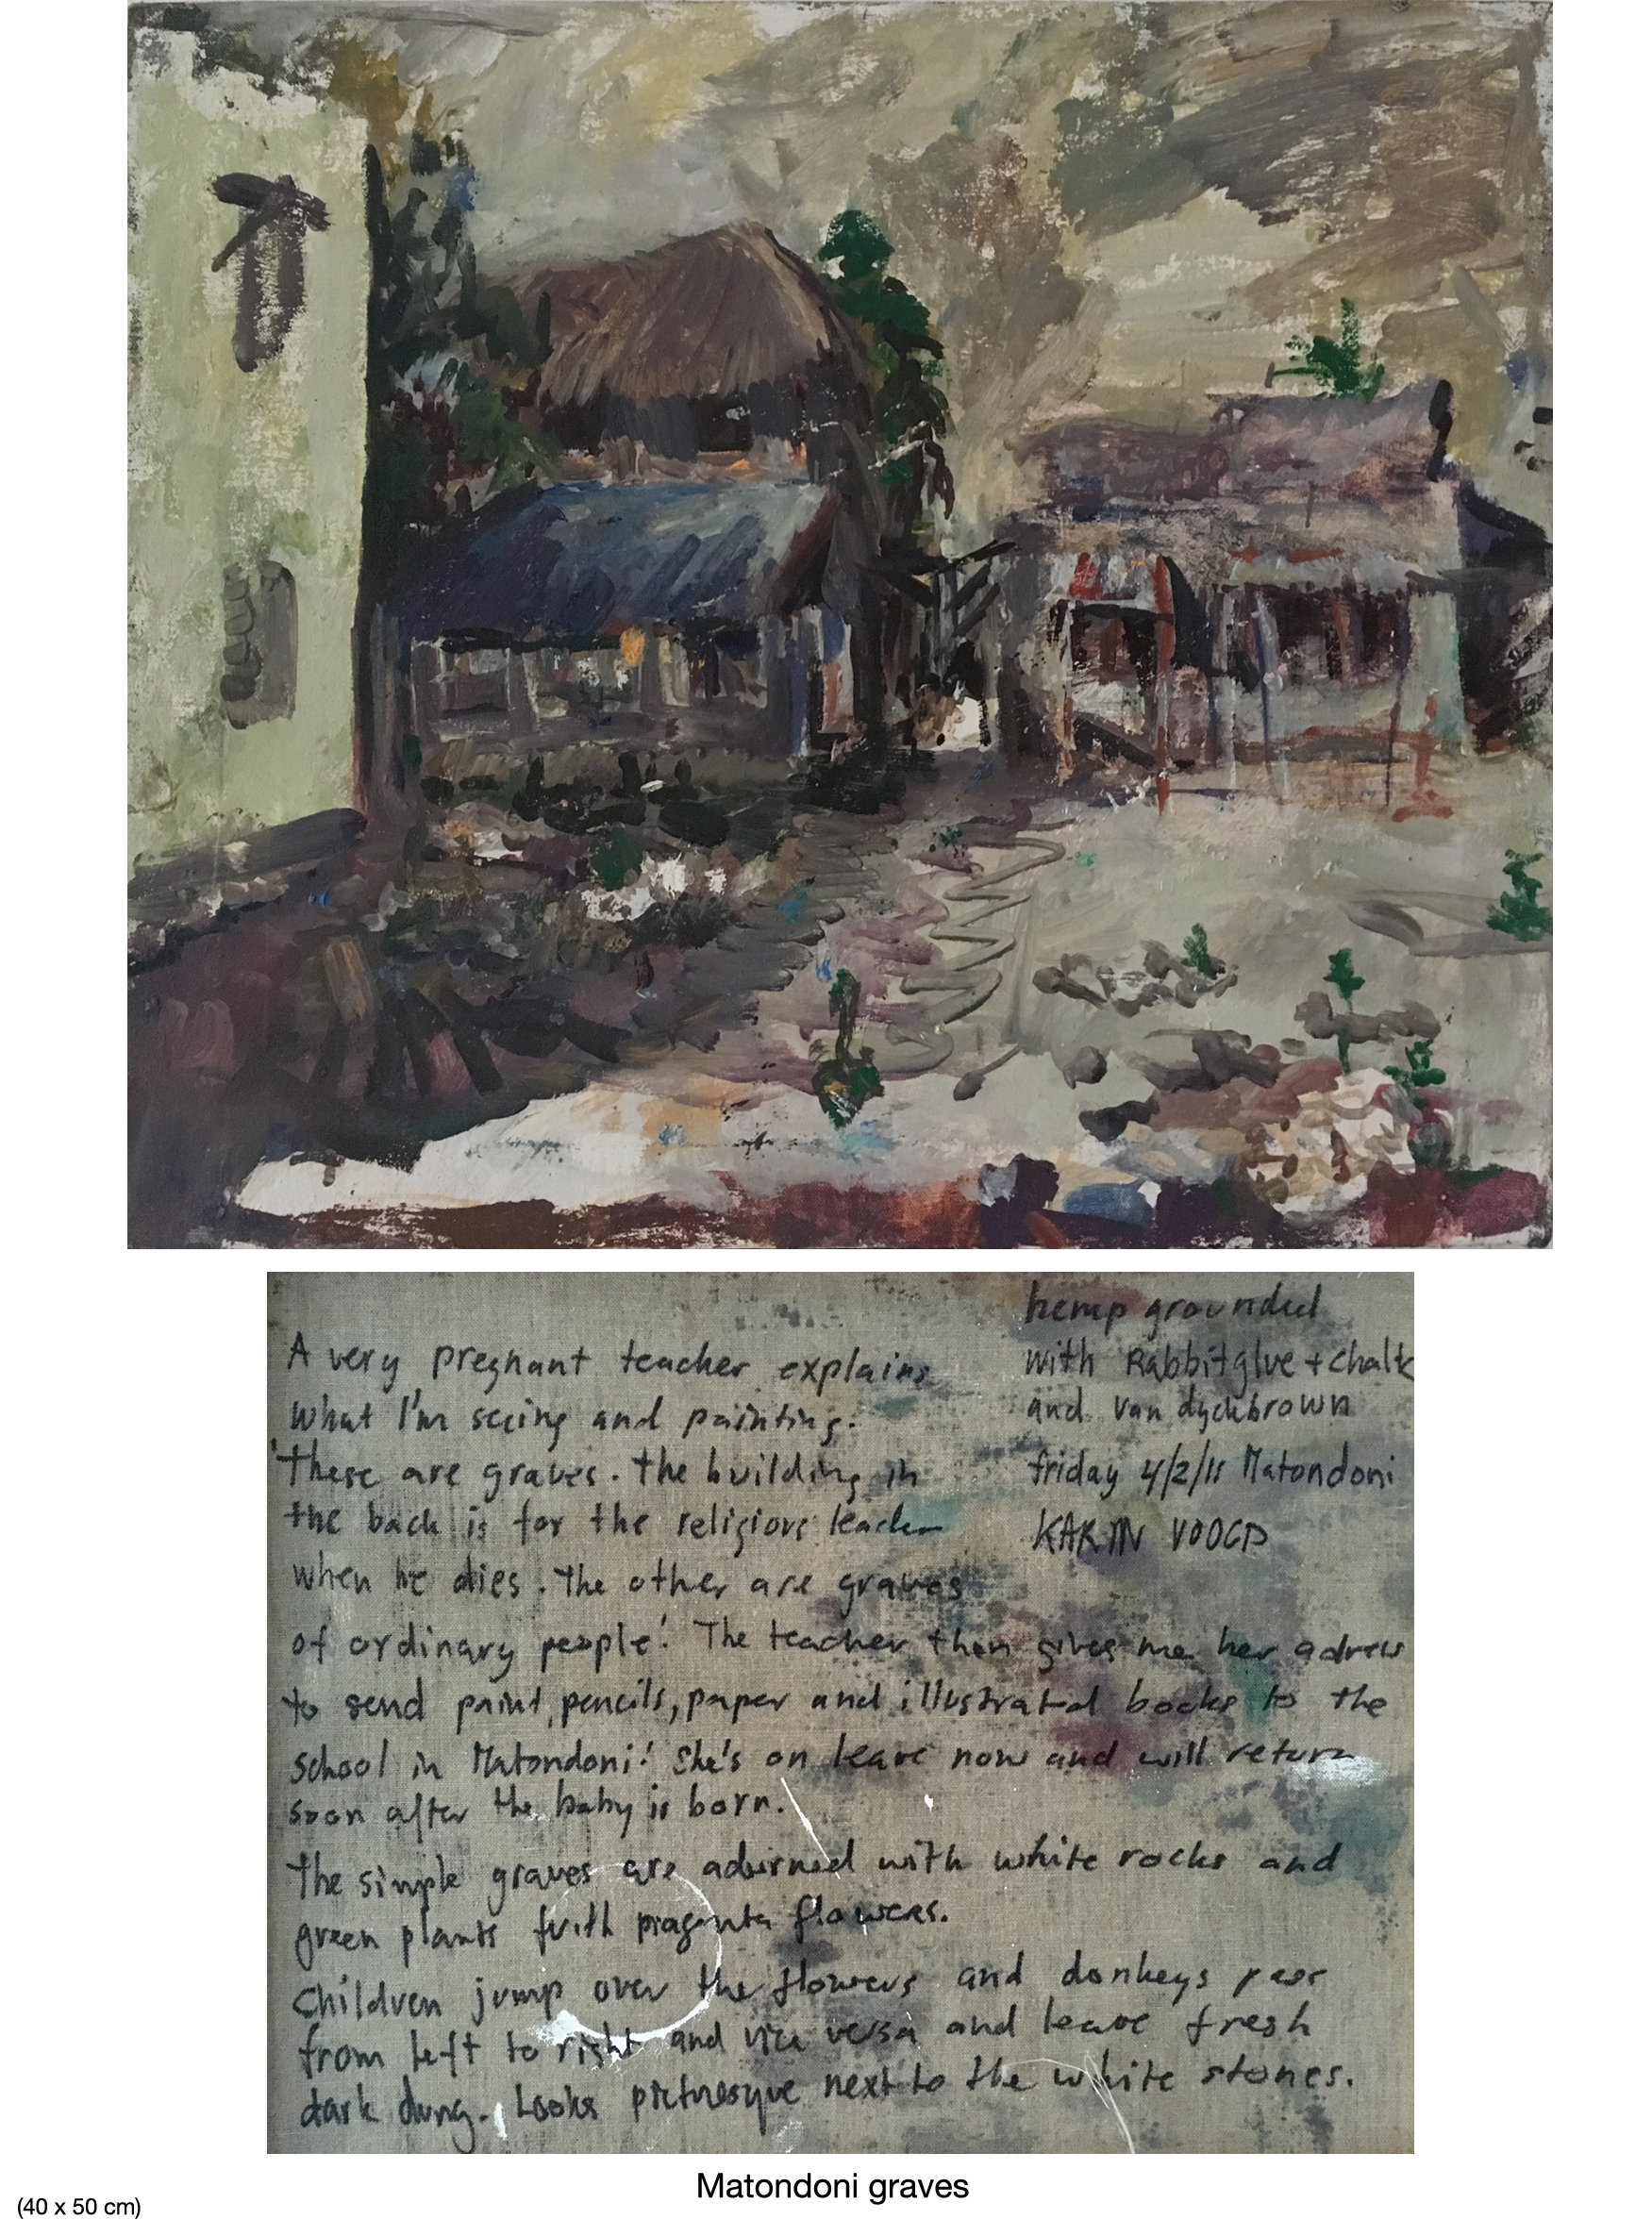 A very pregnant teacher explains
what I'm seeing and painting.
'these are graves. the building in
the back is for the religious leader
when he dies. The other are graves
of ordinary people.' The teacher then gives me her adress
to send paint, pencils, paper and illustrated books to the
school in Matondoni! She's on leave now and will return
soon after the baby is born.
The simple graves are adorned with white rocks and
green plants with magenta flowers.
Children jump over the flowers and donkeys pass
from left to right and vice versa and leave fresh
dark dung. Looks picturesque next to the white stones.
hemp grounded
with Rabbitglue + chalk
and van dyckbrown
friday 4/2/11 Matondoni
KARIN VOOGD
Matondoni graves
(40 x 50 cm)